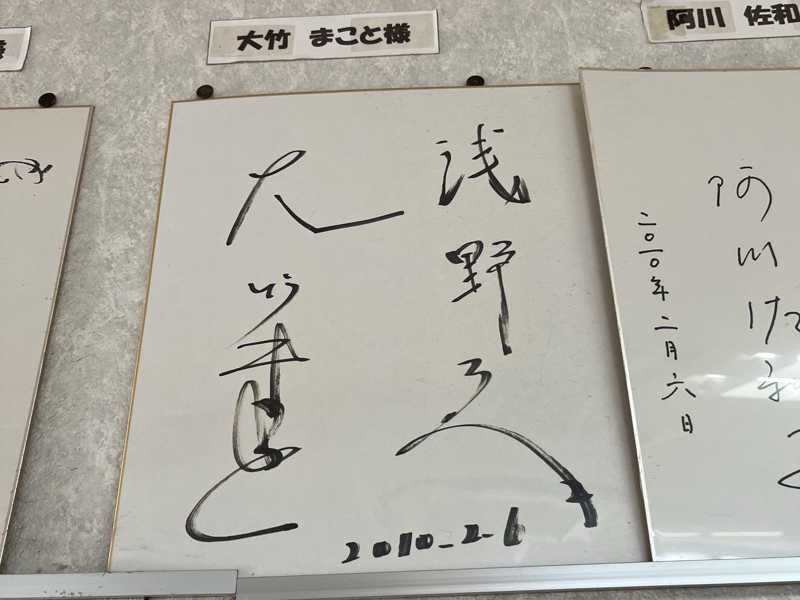 大竹 まこと様
阿川 佐和
浅野久
大竹まこと
2010.2.6
阿川佐和
二〇一〇年二月六日